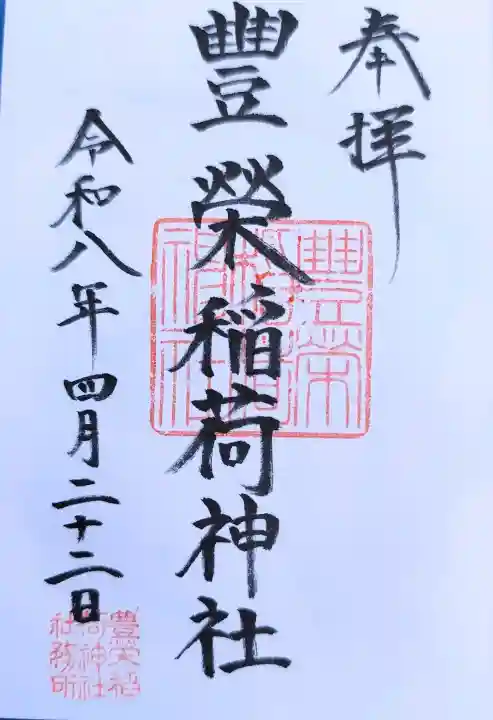 奉拝
豐榮稲荷神社
令和八年四月二十二日
豊榮稲荷神社
豊栄稲荷神社社務所